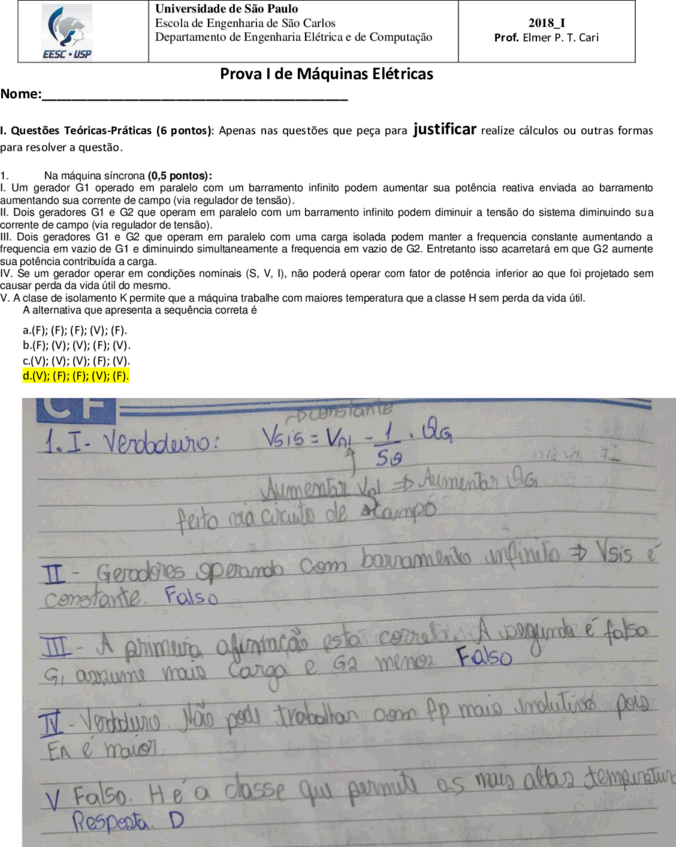 Universidade de São Paulo
Escola de Engenharia de São Carlos
Departamento de Engenharia Elétrica e de Computação
2018_I
Prof. Elmer P. T. Cari
EESC • USP
Prova I de Máquinas Elétricas
Nome:
I. Questões Teóricas-Práticas (6 pontos): Apenas nas questões que peça para justificar realize cálculos ou outras formas
para resolver a questão.
1. Na máquina síncrona (0,5 pontos):
I. Um gerador G1 operado em paralelo com um barramento infinito podem aumentar sua potência reativa enviada ao barramento
aumentando sua corrente de campo (via regulador de tensão).
II. Dois geradores G1 e G2 que operam em paralelo com um barramento infinito podem diminuir a tensão do sistema diminuindo sua
corrente de campo (via regulador de tensão).
III. Dois geradores G1 e G2 que operam em paralelo com uma carga isolada podem manter a frequencia constante aumentando a
frequencia em vazio de G1 e diminuindo simultaneamente a frequencia em vazio de G2. Entretanto isso acarretará em que G2 aumente
sua potência contribuída a carga.
IV. Se um gerador operar em condições nominais (S, V, I), não poderá operar com fator de potência inferior ao que foi projetado sem
causar perda da vida útil do mesmo.
V. A clase de isolamento K permite que a máquina trabalhe com maiores temperatura que a classe H sem perda da vida útil.
A alternativa que apresenta a sequência correta é
a.(F); (F); (F); (V); (F).
b.(F); (V); (V); (F); (V).
c.(V); (V); (V); (F); (V).
d.(V); (F); (F); (V); (F).
→ constante
1. I - Verdadeiro: Vsis = Vnl - 1/SQ . QG
Aumentar Vnl ⇒ Aumentar QG
feito via circuito de campo
II - Geradores operando com barramento infinito ⇒ Vsis é
constante. Falso
III - A primeira afirmação está correta. A segunda é falsa
G1 assume mais carga e G2 menor Falso
IV - Verdadeiro. Não pode trabalhar com fp mais indutivo pois
EA é maior.
V Falso. H é a classe que permite as mais altas temperatura
Resposta. D